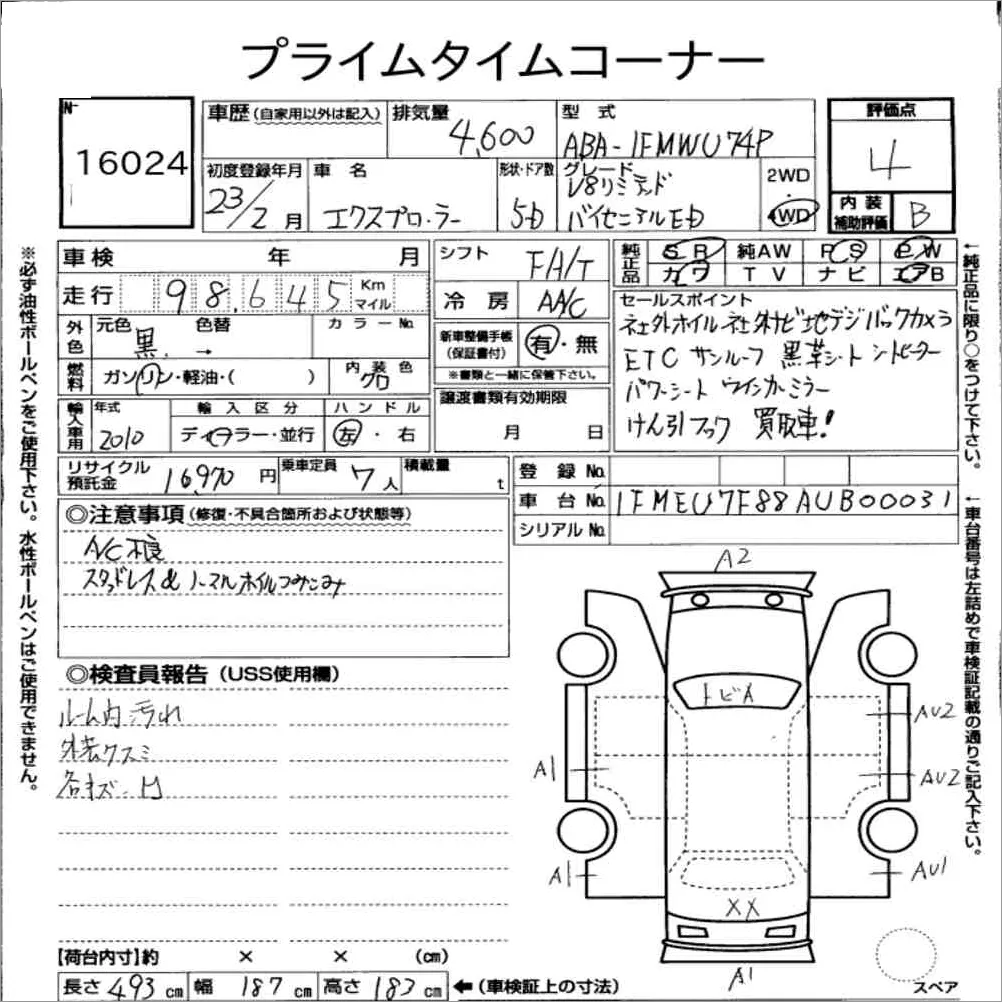 プライムタイムコーナー
№
16024
車歴 (自家用以外は記入)
排気量
4,600
型 式
ABA-1FMWU74P
評価点
4
初度登録年月
23/2月
車 名
エクスプローラー
形状・ドア数
5D
グレード
V8リミテッド
バイセニアルED
2WD
・
4WD
内 装
補助評価
B
※必ず油性ボールペンをご使用下さい。水性ボールペンはご使用できません。
車検 年 月
走行 98,645 Km マイル
シフト
FA/T
冷 房
AAC
純正品
SR 純AW PS PW
カワ TV ナビ エアB
外色
元色
黒
色替
→
カラー№
燃料
ガソリン・軽油・( )
内 装 色
クロ
新車整備手帳
(保証書付)
有・無
※書類と一緒に保管下さい。
セールスポイント
社外ホイル 社外ナビ 地デジ バックカメラ
ETC サンルーフ 黒革シート シートヒーター
パワーシート ウインカーミラー
けん引フック 買取車!
輸入車用
年式
2010
輸 入 区 分
ディーラー・並行
ハ ン ド ル
左・右
譲渡書類有効期限
月 日
リサイクル
預託金
16,970 円
乗車定員
7人
積載量
t
登 録 №
車 台 №
1FMEU7F88AUB00031
シリアル №
←純正品に限り○をつけて下さい。
←車台番号は左詰めで車検証記載の通りご記入下さい。
◎注意事項 (修復・不具合箇所および状態等)
A/C不良
スタッドレス&ノーマルホイルつみこみ
◎検査員報告 (USS使用欄)
ルーム内汚れ
外装クスミ
各キズ・凹
A2
トビA
AU2
A1
AU2
A1
AU1
XX
A1
スペア
【荷台内寸】約 × × (cm)
長さ 493 cm 幅 187 cm 高さ 183 cm ←(車検証上の寸法)